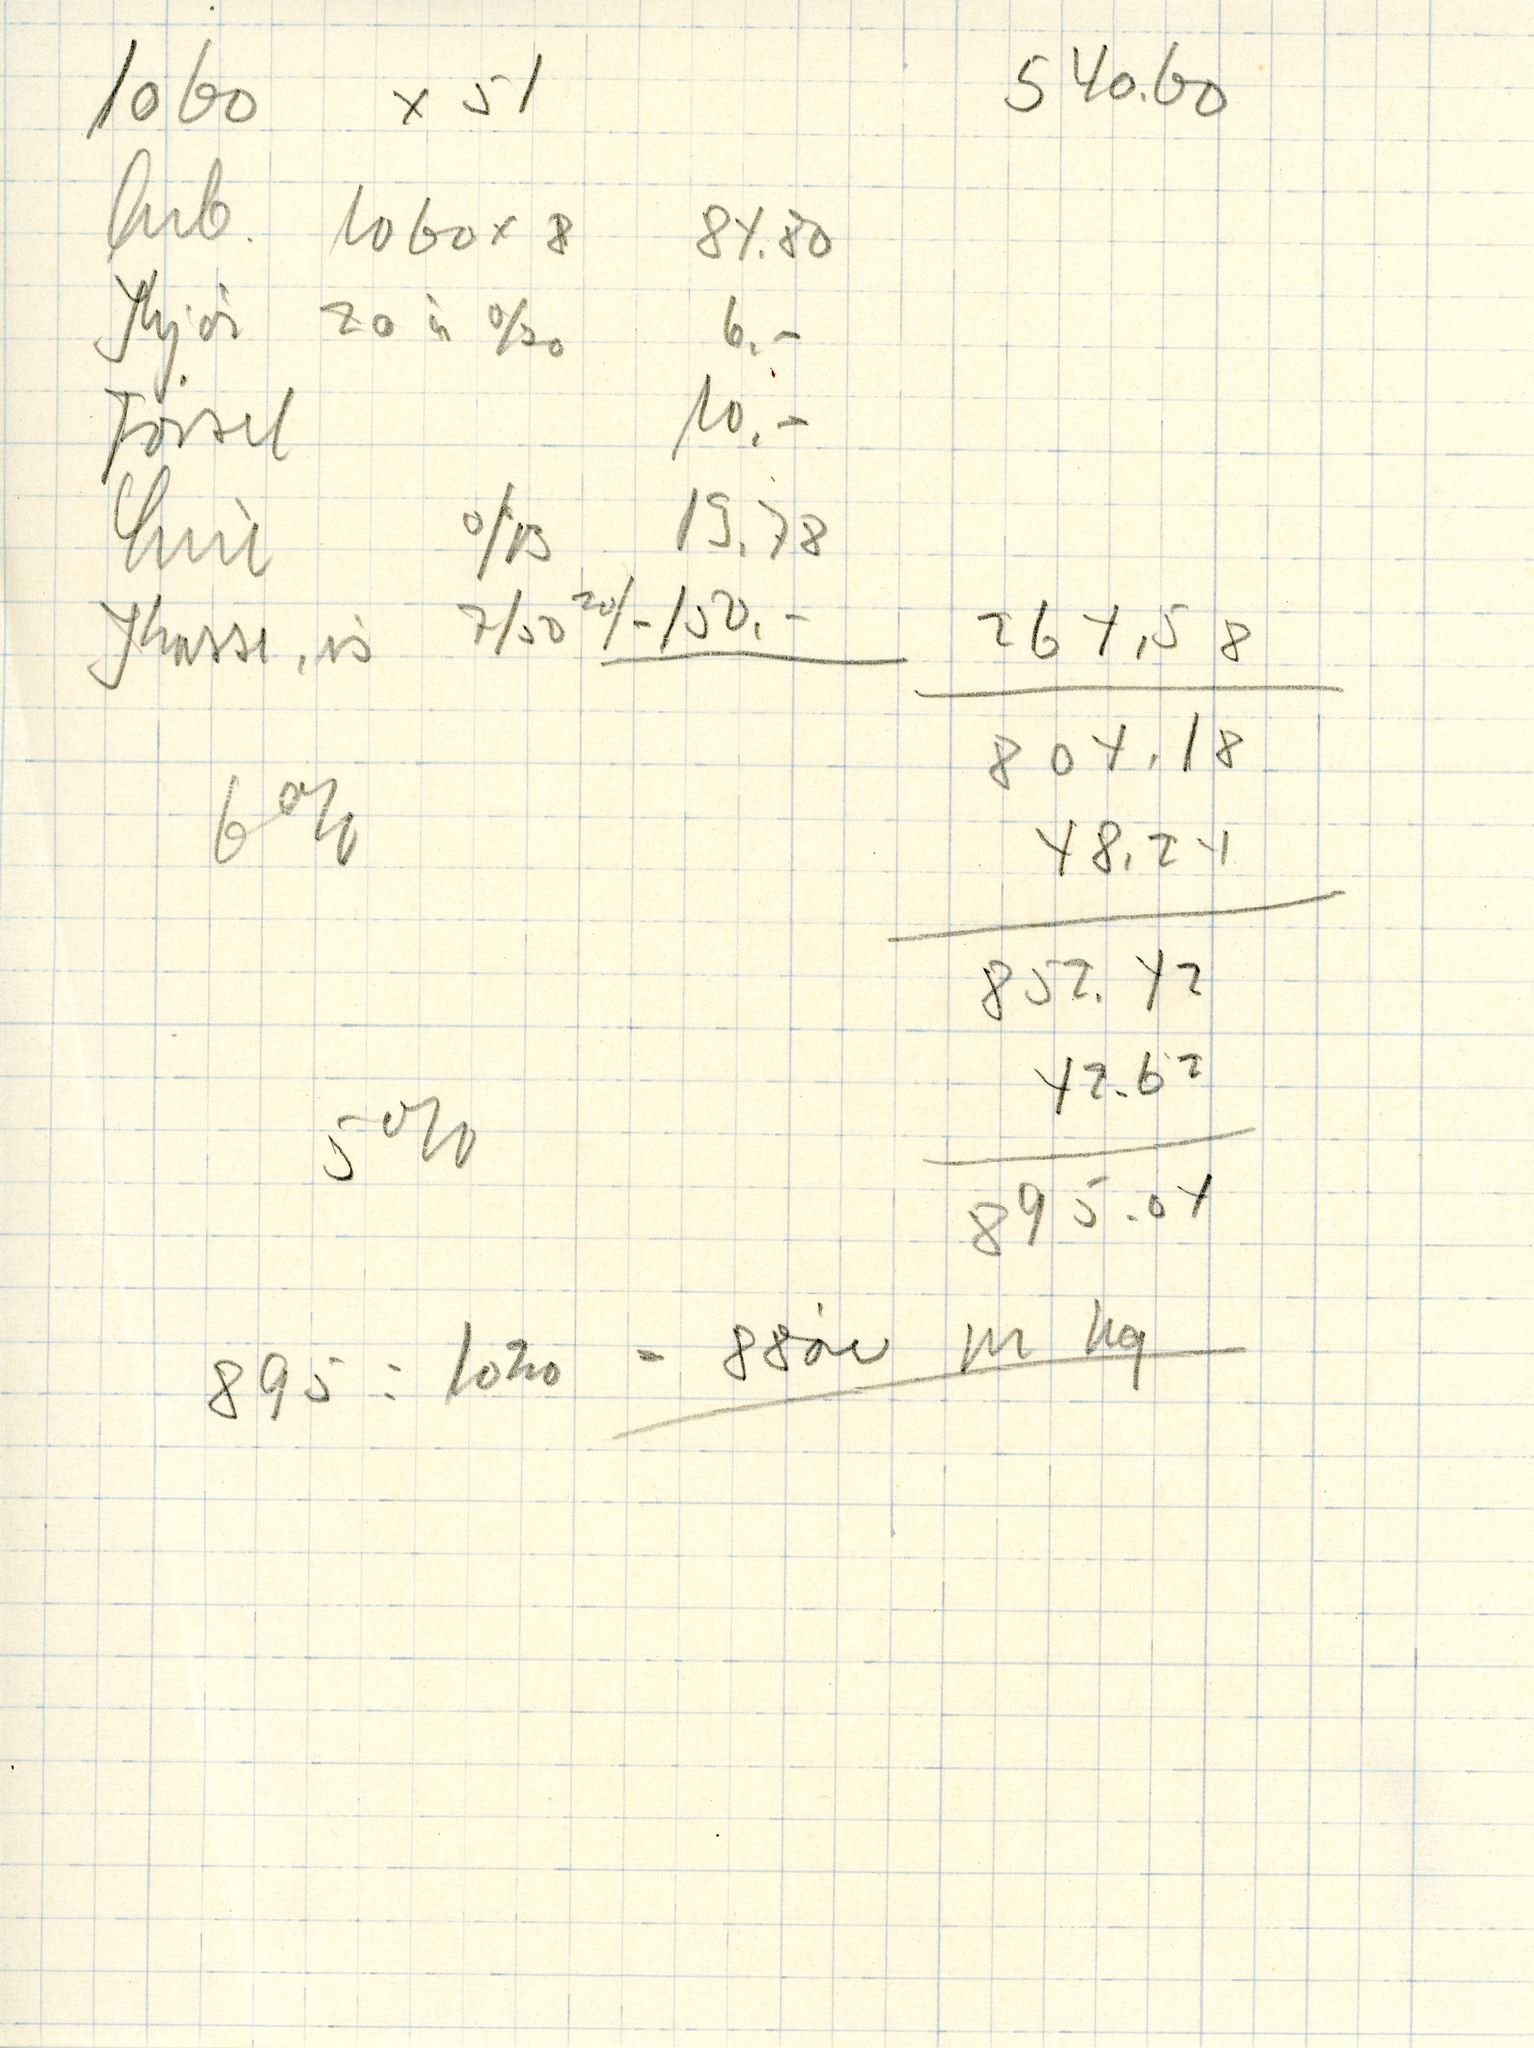 1060 x 51 540.60
Arb. 1060 x 8 84.80
Kjør 20 à 0/30 6.-
Førsel 10.-
0/15 19.78
Kasse, is 7/50 20/- 150.- 264,58
804.18
6 % 48.24
852.42
42.62
5 %
895.04
895 : 1020 = 88 øre pr kg